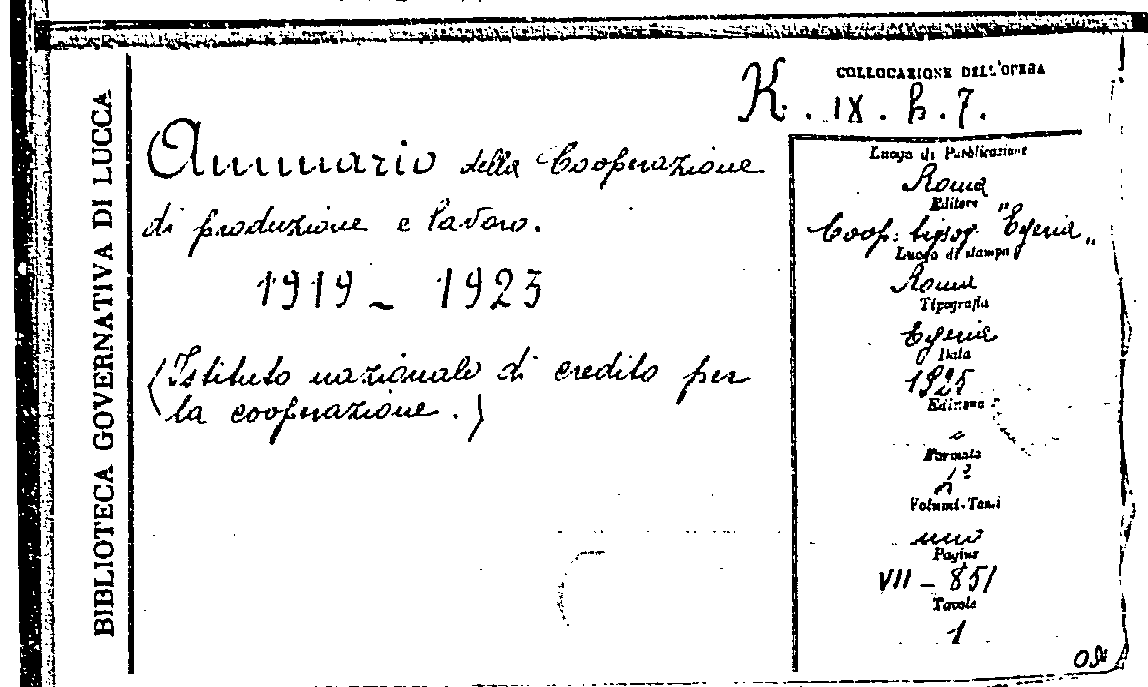 BIBLIOTECA GOVERNATIVA DI LUCCA
COLLOCAZIONE DELL'OPERA
K. IX. b. 7.
Annuario della Cooperazione
di produzione e lavoro.
1919 - 1923
(Istituto nazionale di credito per
la cooperazione.)
Luogo di Pubblicazione
Roma
Editore
Coop: tipog. "Egeria"
Luogo di stampa
Roma
Tipografia
Egeria
Data
1925
Edizione
Formato
Volumi-Tomi
uno
Pagine
VII - 851
Tavole
1